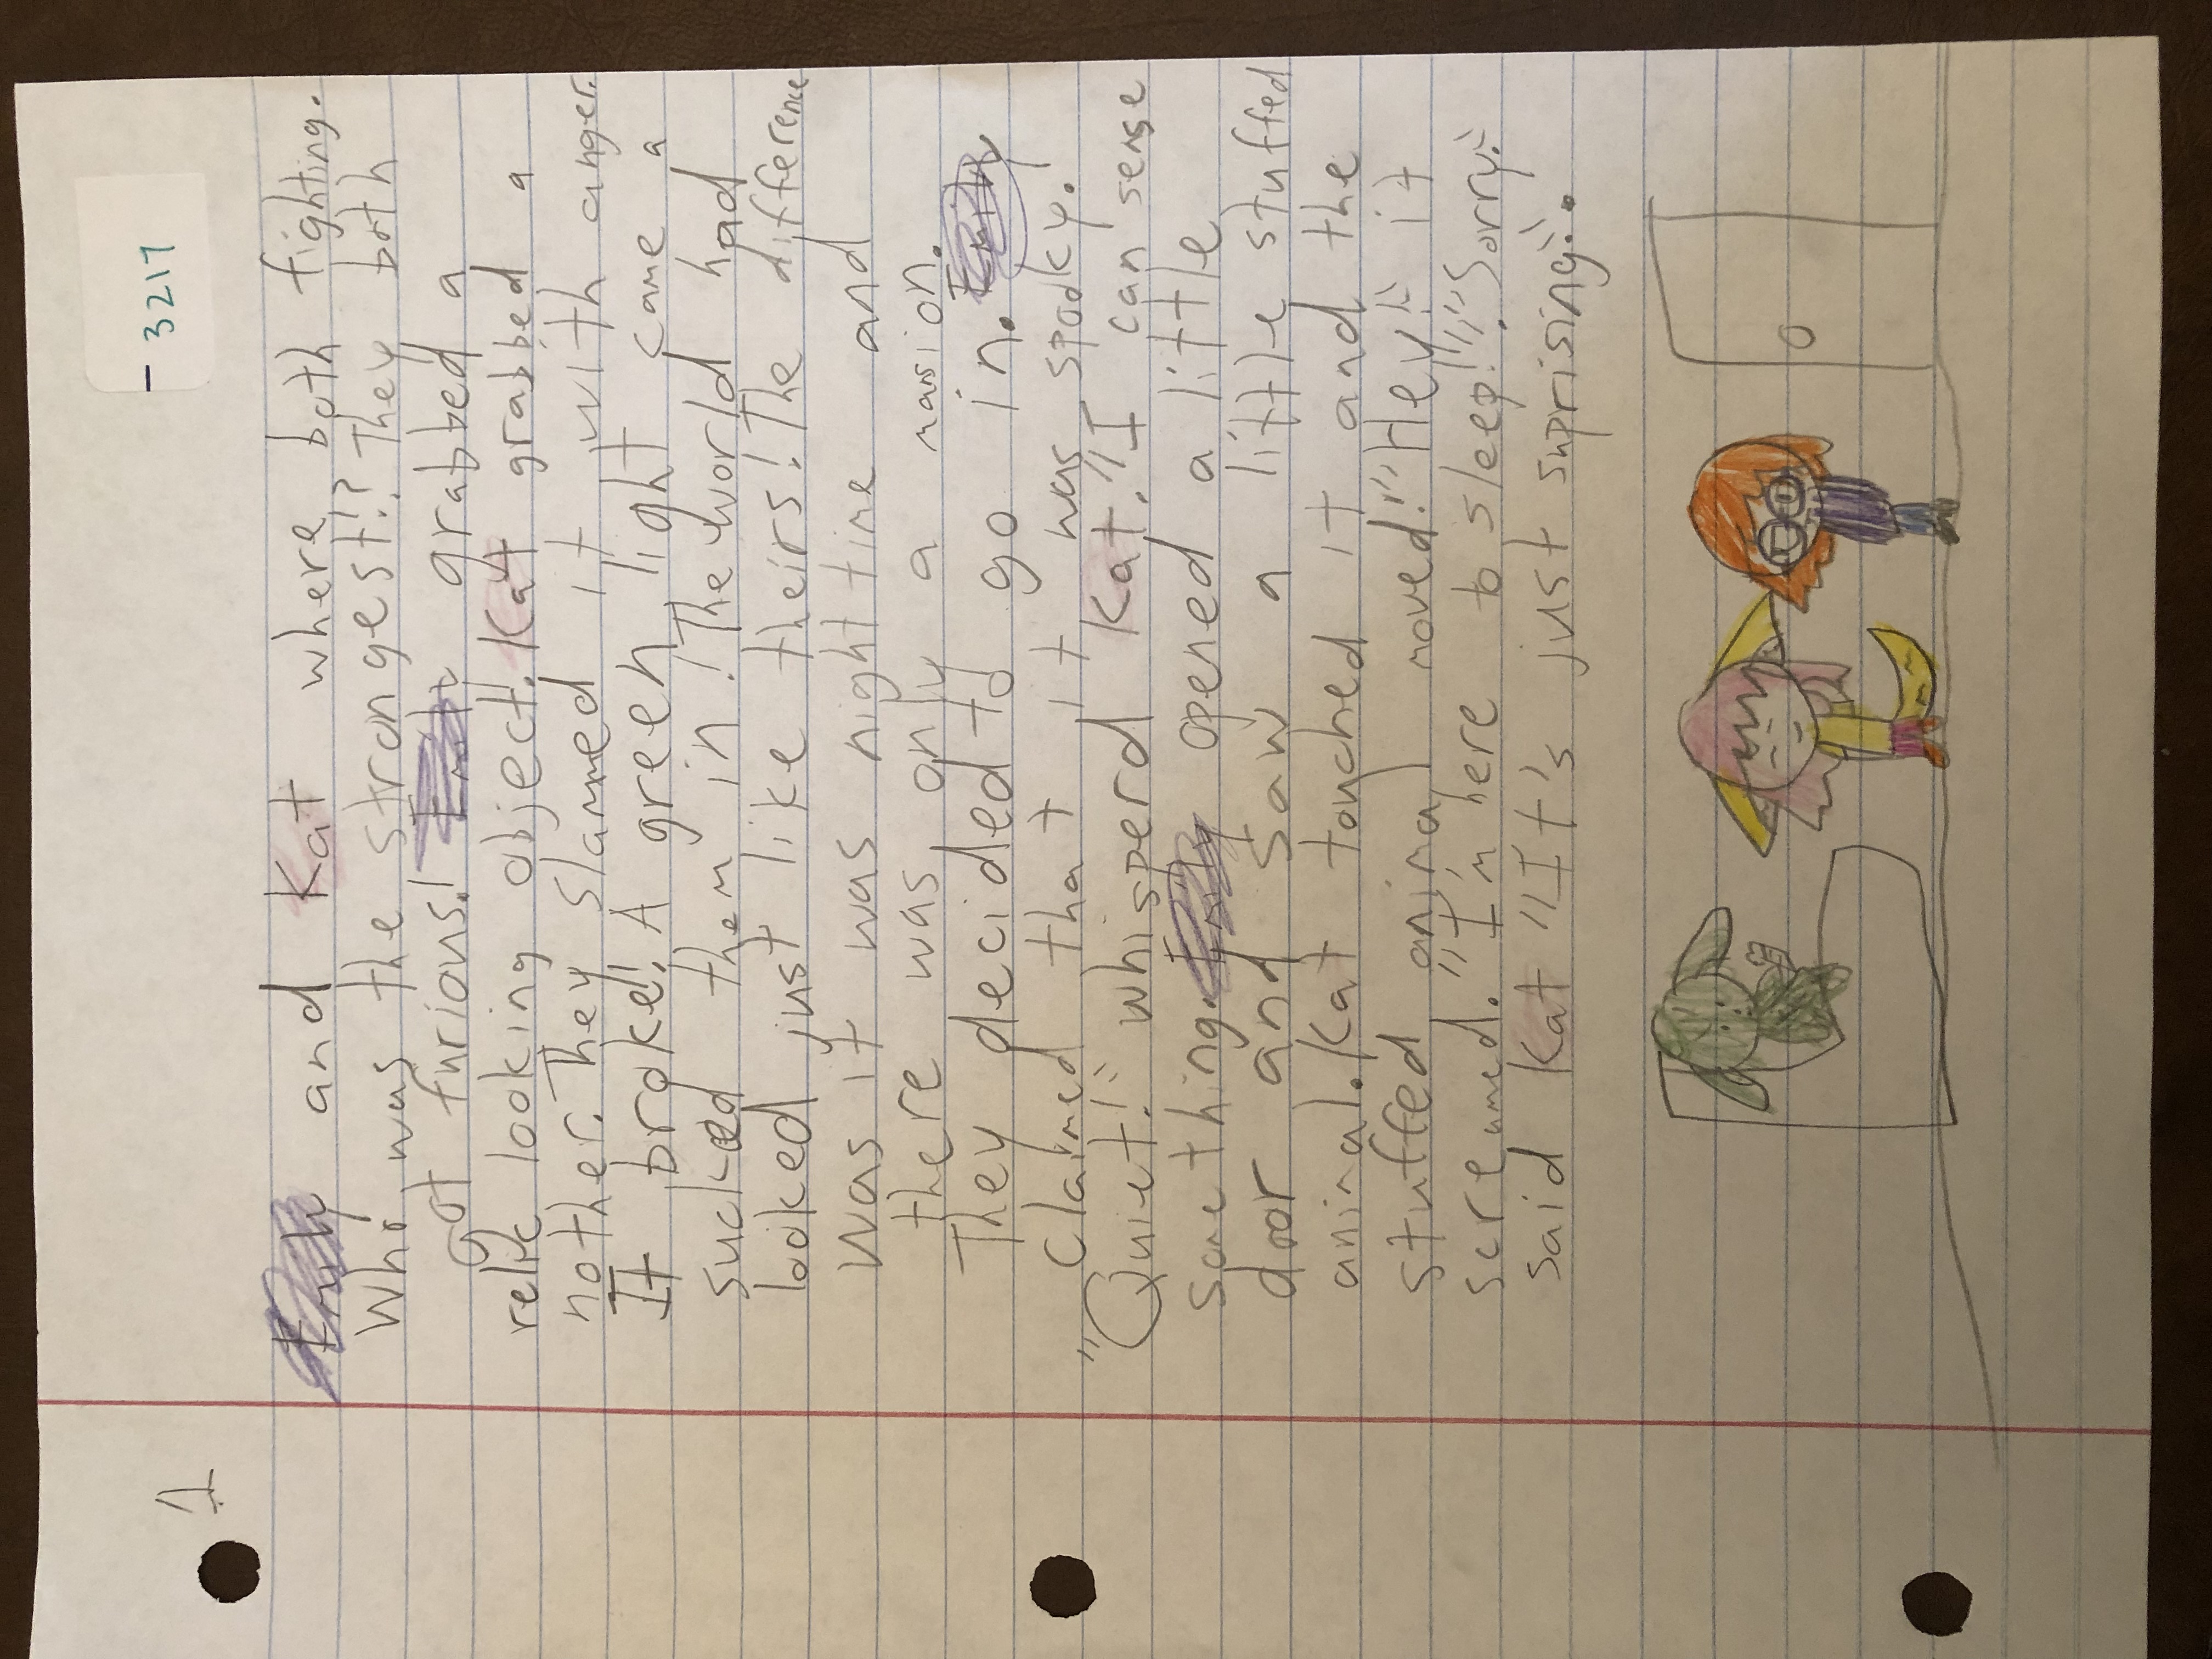 1
- 3217
Emily and Kat where both fighting.
Who was the strongest!? They both
got furious! Emily grabbed a
relic looking object. Kat grabbed a
nother. They slammed it with anger.
It broke! A green light came a
sucked them in! The world had
looked just like theirs! The difference
was it was night time and
there was only a mansion.
They decided to go in. Emily
claimed that it was spooky.
"Quiet!" whisperd Kat. "I can sense
something. Emily opened a little
door and saw a little stuffed
animal. Kat touched it and the
stuffed animal moved! "Hey!" it
screamed. "I'm here to sleep!" "Sorry."
said Kat "It's just suprising".